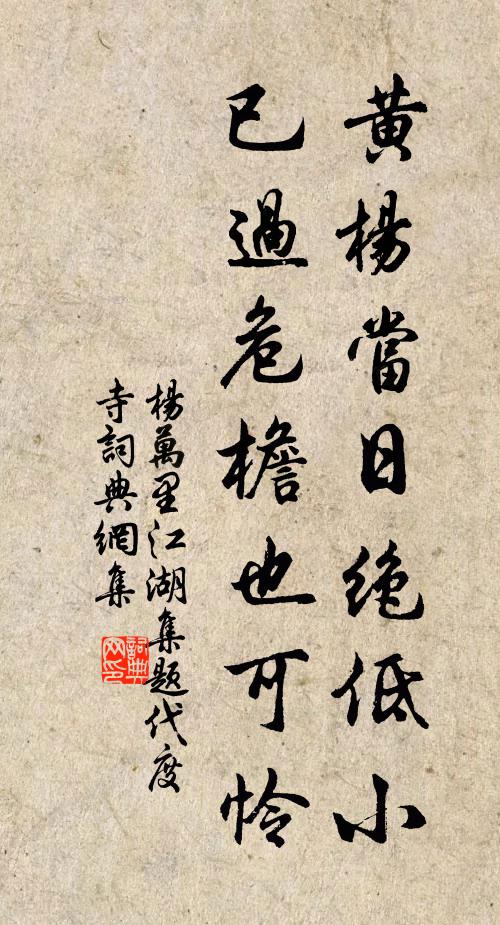 黃楊當日絶低小
已過危檐也可怜
楊萬里江湖集題代度
寺詞典網集
詞典
网印